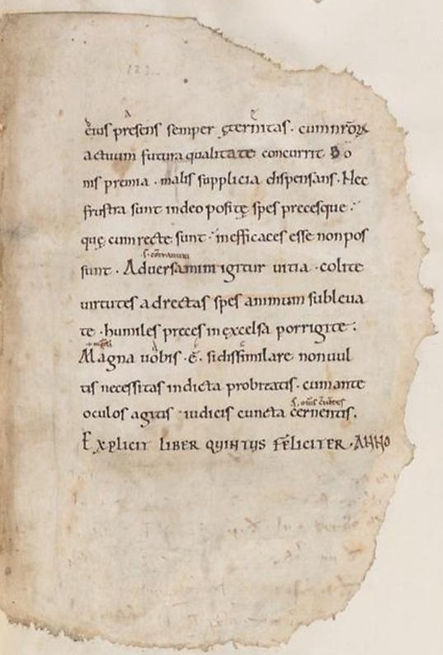 eius presens semper ęternitas · cum nr̄oꝝ
actuum futura qualitate concurrit Bo
nis premia · malis supplicia dispensans · Nec
frustra sunt in deo positę spes precesque ·
quę cum recte sunt · inefficaces esse non pos
sunt · Aduersamini igitur uitia · colite
uirtutes ad rectas spes animum subleua
te · humiles preces in excelsa porrigite ·
Magna uobis · ē · si dissimilare non uul
tis necessitas indicta probitatis · cum ante
oculos agitis iudicis cuncta cernentis.
Explicit LIBER QUINTUS FELICITER · ANNO